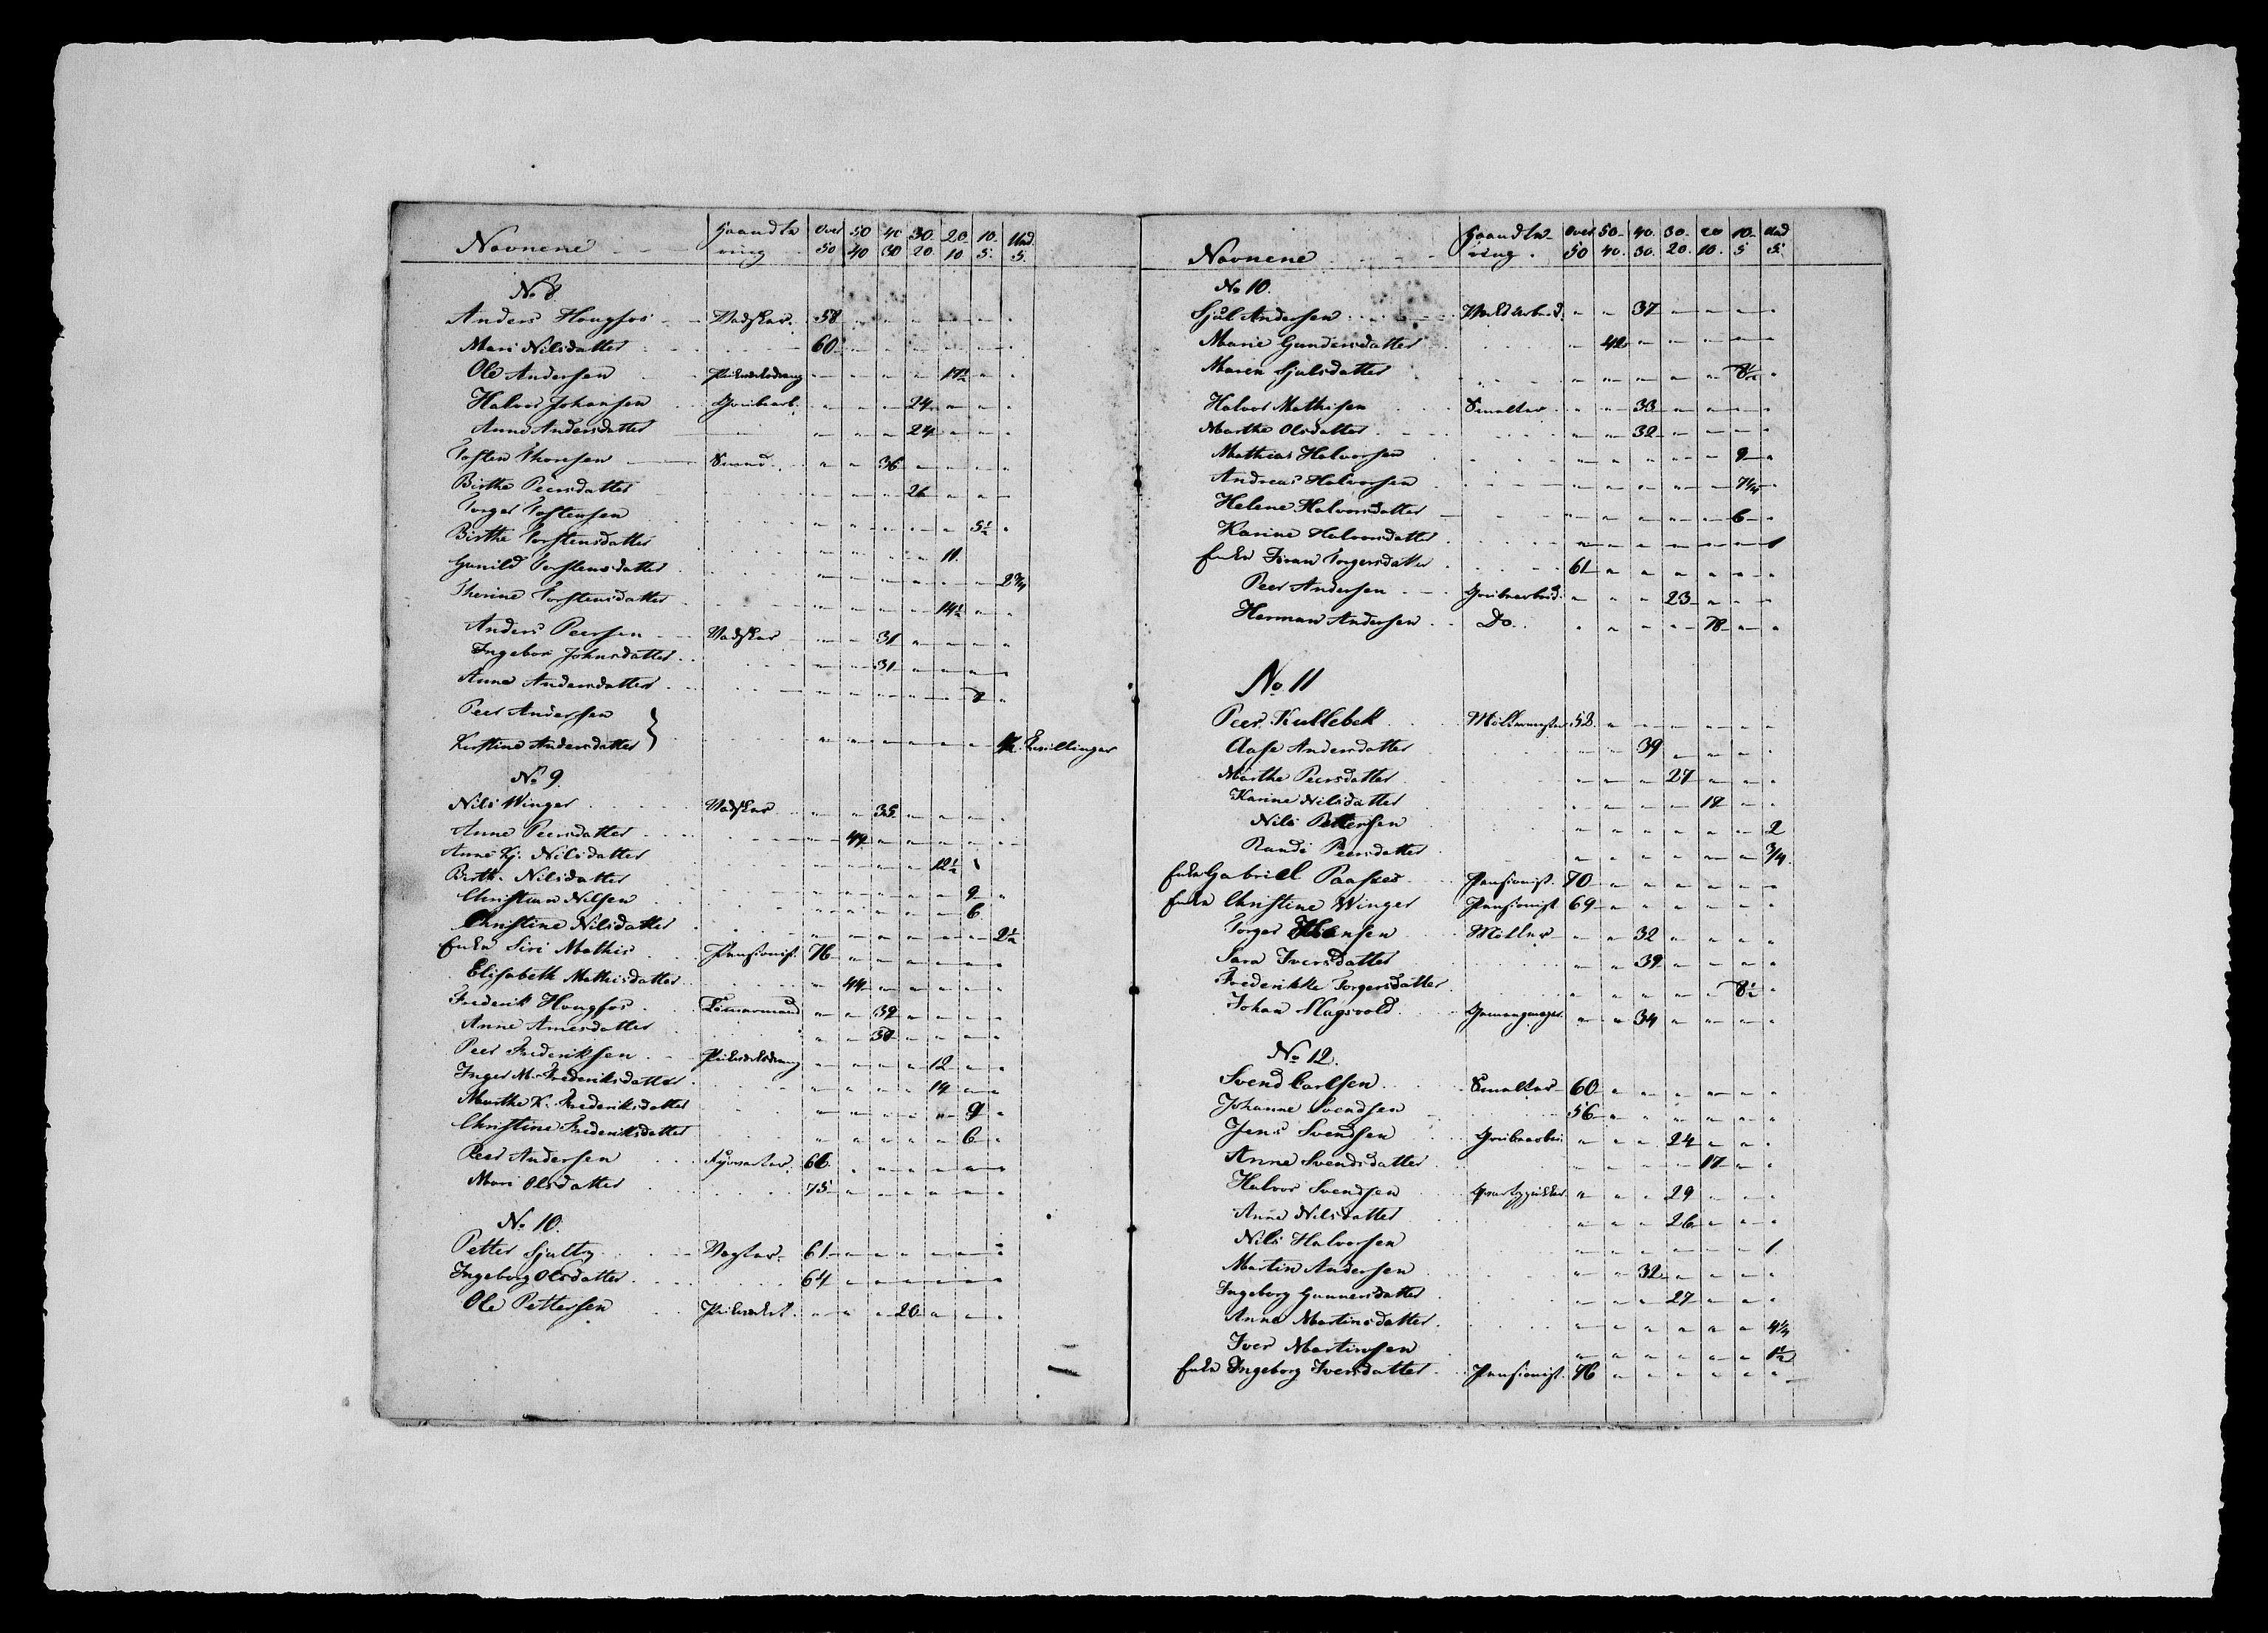 Navnene Haandte Over 50 40 30. 20. 10. Und
ring 50 40 30 20 10 5. 5.
No 8.
Anders Hougfos Vadsker. 58
Mari Nilsdatter 60
Ole Andersen 17½
Halvor Johansen Grubearb. 24
Anne Andersdatter 24
Tosten Thorsen Smed 36
Birthe Peersdatter 26
Torger Tostensen 5½
Birthe Torstensdatter 11.
Gunild Torstensdatter 2¾
Therine Torstensdatter 14½
Anders Peersen Vadsker 31
Ingebor Johnsdatter 31
Anne Andersdatter 8
Peer Andersen }
Kirstine Andersdatter } Tvillinger
No 9.
Nils Winger Vadsker 35
Anne Peersdatter 49
Anne Kj. Nilsdatter 12½
Birth. Nilsdatter 9
Christian Nilsen 6
Christine Nilsdatter 2½
Enke Siri Mathis Pensionis. 76
Elisabeth Mathisdatter 44
Frederik Hougfos Tömermand 39
Anne Arnesdatter 38
Peer Frederiksen 12
Inger M. Frederiksdatter 14
Marthe K. Frederiksdatter 9
Christine Frederiksdatter 6
Peer Andersen 66
Mari Olsdatter 75
No 10.
Petter Sjulty Vogter 61
Ingeborg Olsdatter 64
Ole Pettersen 20
Navnene Haandte Over 50 40. 30. 20 10 Und
ring. 50 40. 30. 20. 10. 5 5.
No 10.
Sjul Andersen 37
Marie Gundersdatter 42
Maren Sjulsdatter 8½
Halvor Mathisen Smelter 33
Marthe Olsdatter 32
Mathias Halvorsen 9
Andreas Halvorsen 7¼
Helene Halvorsdatter 6
Karine Halvorsdatter 1
Enke Joran Torgersdatter 61
Peer Andersen Grubearbeid. 23
Herman Andersen Do. 18
No. 11
Peer Kullebek Möllermester 52
Aase Andersdatter 39
Marthe Peersdatter 27
Karine Nilsdatter 12
Nils Pettersen 2
Randi Peersdatter 3/4.
Enke Gabriel Paaskes Pensionist. 70
Enke Christine Winger Pensionist 69
Torger Hansen Möller 32
Sara Iversdatter 39
Frederikke Torgersdatter 8½
Johan Slagsvold 34
No 12.
Svend Carlsen Smelter 60
Johanne Svendsen 56
Jens Svendsen Grubearbei. 24
Anne Svendsdatter 17
Halvor Svendsen 29
Anne Nilsdatter 26
Nils Halvorsen 1
Martin Andersen 32
Ingeborg Gunnersdatter 27
Anne Martinsdatter 4¼
Iver Martinsen 1½
Enke Ingeborg Iversdatter Pensionist. 76